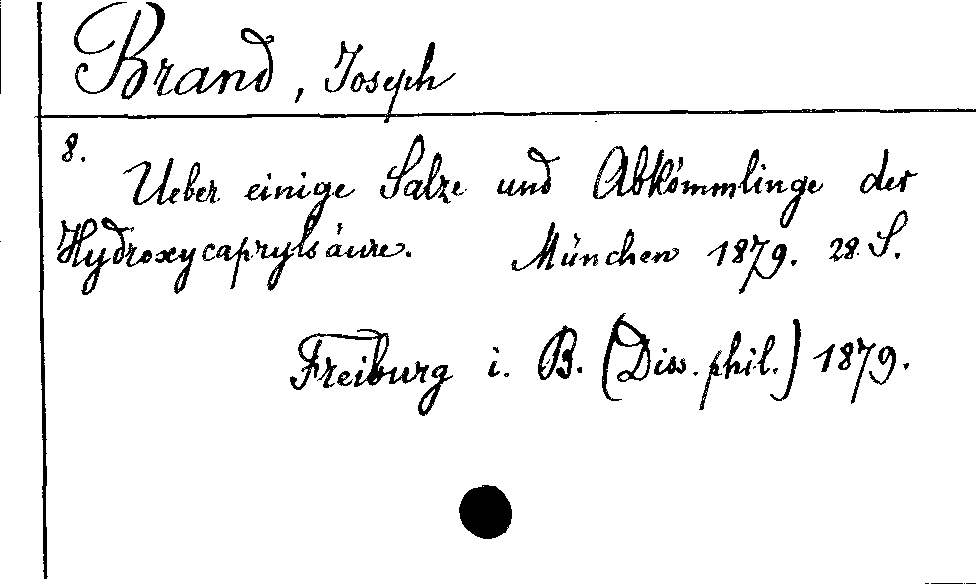 Brand, Joseph
8.
Ueber einige Salze und Abkömmlinge der
Hydroxycaprylsäure. München 1879. 28 S.
Freiburg i. B. (Diss. phil.) 1879.